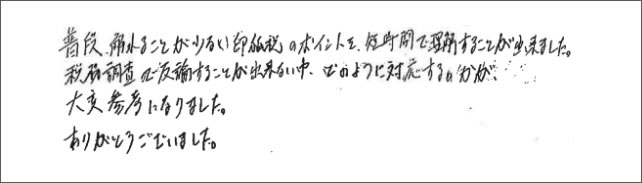 普段、触れることが少ない印紙税のポイントを、短時間で理解することが出来ました。
税務調査で反論することが出来ない中、どのように対応するのかが、
大変参考になりました。
ありがとうございました。